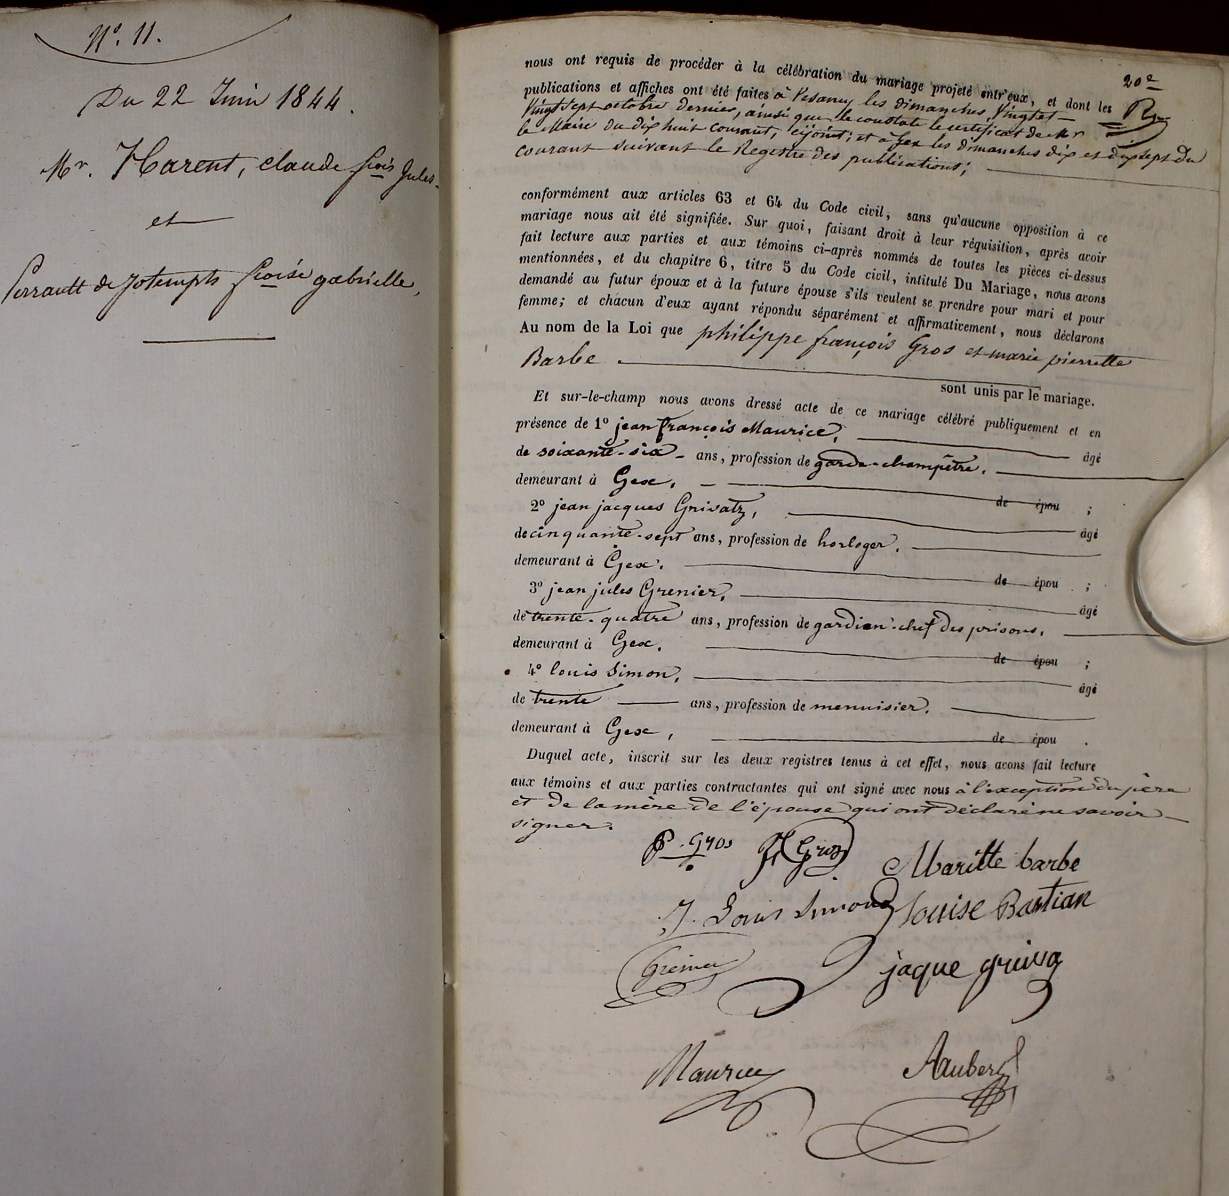 N°. 11.
Du 22 Juin 1844.
Mr. Harent, claude fçois Jules
et
Perrault de Jotemps fçoise gabrielle,
20e
nous ont requis de procéder à la célébration du mariage projeté entr'eux, et dont les
publications et affiches ont été faites à Vesancy les dimanches Vingt et
Vingt Sept octobre dernier, ainsi que le constate le certificat de Mr
le Maire du dix huit courant, cijoint; et à Gex les dimanches dix et dix sept du
courant suivant le Registre des publications;
conformément aux articles 63 et 64 du Code civil, sans qu'aucune opposition à ce
mariage nous ait été signifiée. Sur quoi, faisant droit à leur réquisition, après avoir
fait lecture aux parties et aux témoins ci-après nommés de toutes les pièces ci-dessus
mentionnées, et du chapitre 6, titre 5 du Code civil, intitulé Du Mariage, nous avons
demandé au futur époux et à la future épouse s'ils veulent se prendre pour mari et pour
femme; et chacun d'eux ayant répondu séparément et affirmativement, nous déclarons
Au nom de la Loi que philippe françois Gros et marie pierrette
Barbe
sont unis par le mariage.
Et sur-le-champ nous avons dressé acte de ce mariage célébré publiquement et en
présence de 1° jean françois Maurice, âgé
de soixante-six ans, profession de garde-champêtre,
demeurant à Gex, de épou ;
2° jean jacques Grivatz, âgé
de cinquante-sept ans, profession de horloger,
demeurant à Gex, de épou ;
3° jean jules Grenier, âgé
de trente-quatre ans, profession de gardien-chef des prisons,
demeurant à Gex, de épou ;
4° louis Simon, âgé
de trente ans, profession de menuisier,
demeurant à Gex, de épou .
Duquel acte, inscrit sur les deux registres tenus à cet effet, nous avons fait lecture
aux témoins et aux parties contractantes qui ont signé avec nous à l'exception du père
et de la mère de l'épouse qui ont déclaré ne savoir
signer.
P. gros Gros Mariette barbe
J. Louis Simond louise Bastian
Grenier jaque griva
Maurice Aubert